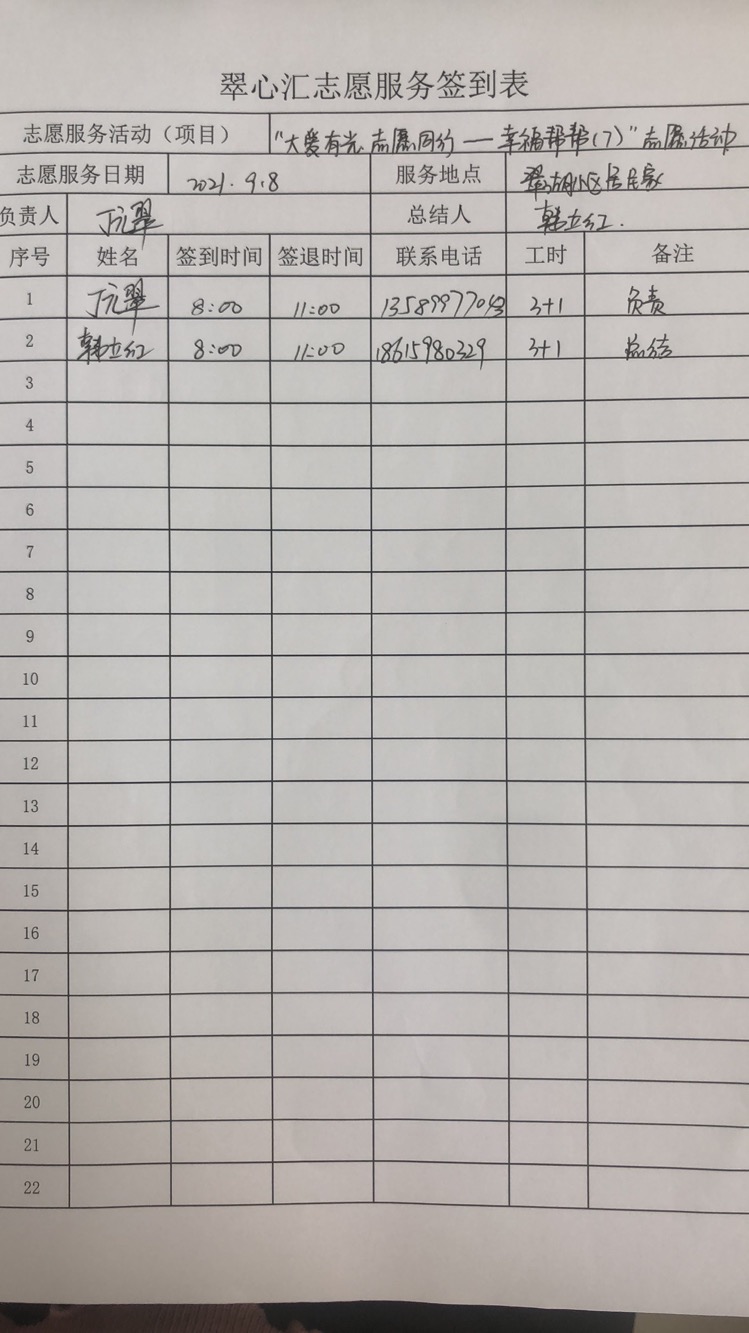 翠心汇志愿服务签到表
志愿服务活动（项目） “大爱有光 志愿同行——幸福帮帮(7)”志愿活动
志愿服务日期 2021.9.8 服务地点 翠湖小区居民家
负责人 丁元翠 总结人 韩立红.
序号 姓名 签到时间 签退时间 联系电话 工时 备注
1 丁元翠 8:00 11:00 3+1 负责
2 韩立红 8:00 11:00 18615980329 3+1 总结
3
4
5
6
7
8
9
10
11
12
13
14
15
16
17
18
19
20
21
22